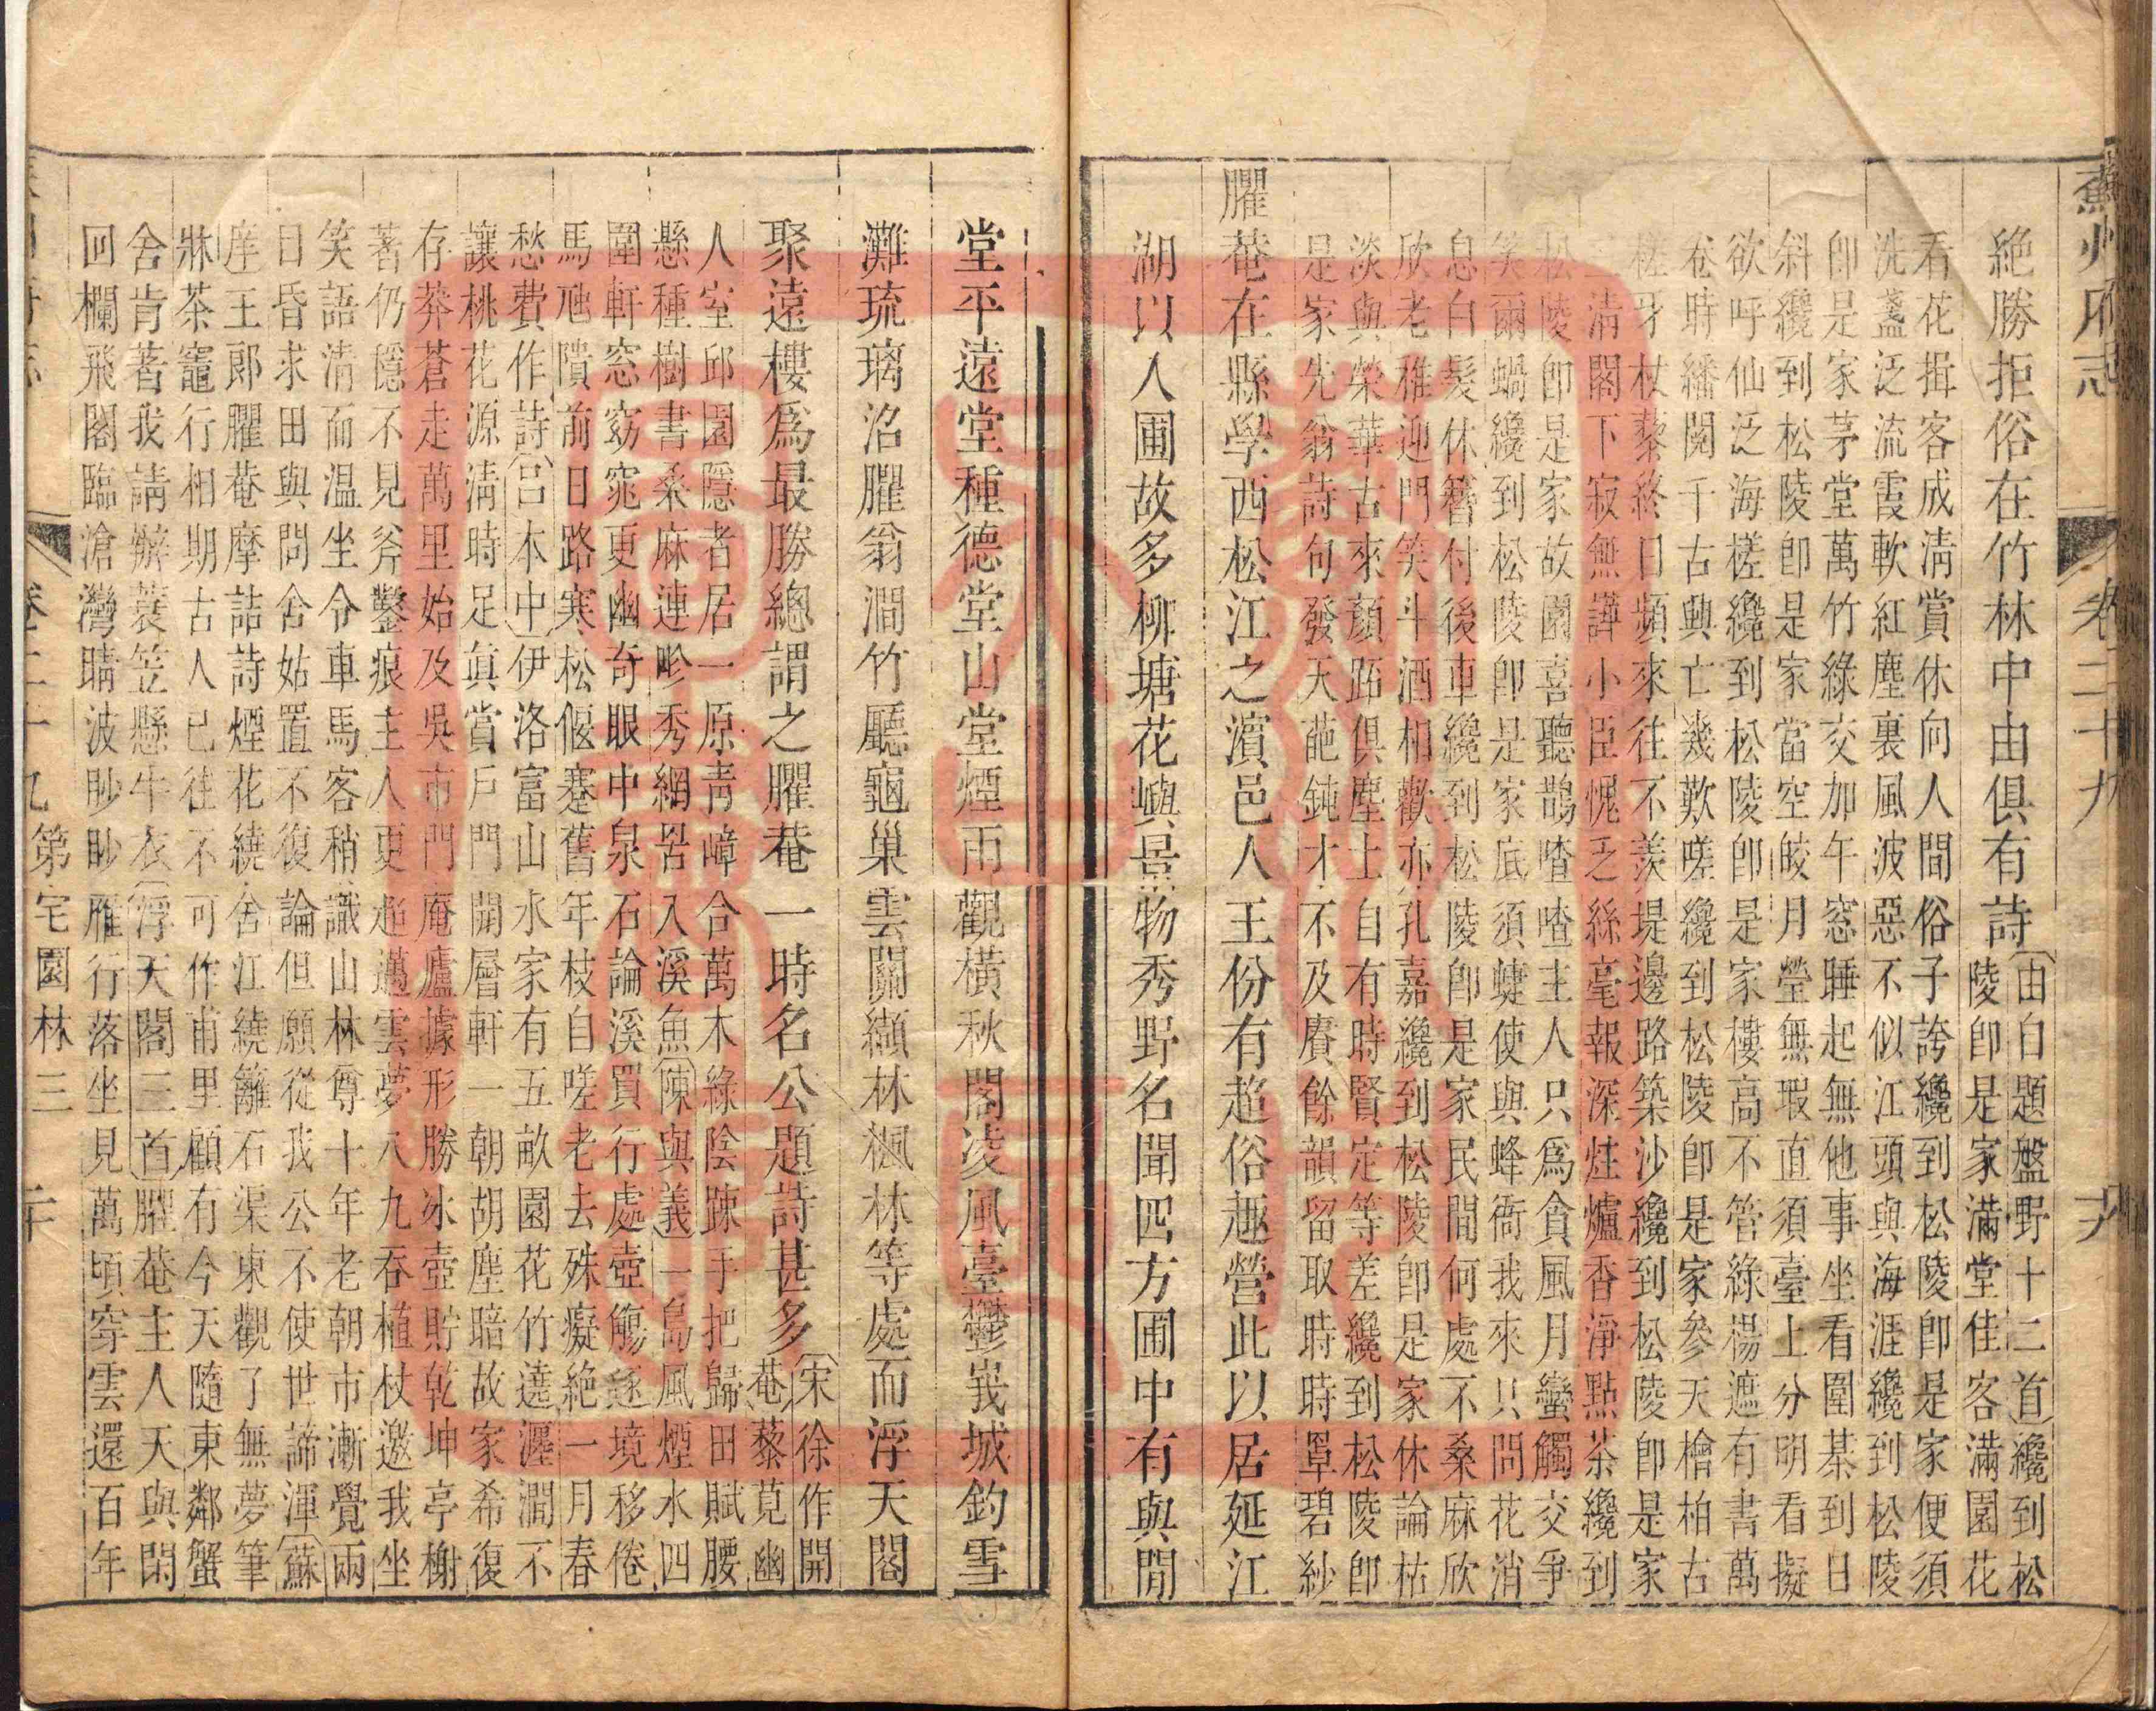 蘇州府志　卷二十九
絶勝拒俗在竹林中由俱有詩
由自題盤野十二首纔到松
陵卽是家滿堂佳客滿園花
看花揖客成淸賞休向人間俗子誇纔到松陵卽是家便須
洗盞泛流霞軟紅塵裏風波惡不似江頭與海涯纔到松陵
卽是家茅堂萬竹綠交加午窓睡起無他事坐看圍棊到日
斜纔到松陵卽是家當空皎月瑩無瑕直須臺上分明看擬
欲呼仙泛海槎纔到松陵卽是家樓高不管綠楊遮有書萬
卷時繙閱千古興亡幾歎嗟纔到松陵卽是家參天檜柏古
槎牙杖藜終日頻來往不羨堤邊路築沙纔到松陵卽是家
三淸閣下寂無譁小臣愧乏絲毫報深炷爐香淨點茶纔到
松陵卽是家故園喜聽鵲喳喳主人只爲貪風月蠻觸交爭
笑爾蝸纔到松陵卽是家底須蜨使與蜂衙我來只問花消
息白髮休簪付後車纔到松陵卽是家民間何處不桑麻欣
欣老稚迎門笑斗酒相歡亦孔嘉纔到松陵卽是家休論枯
淡與榮華古來顏跖俱塵土自有時賢定等差纔到松陵卽
是家先翁詩句發天葩鈍才不及賡餘韻留取時時罩碧紗
臞菴在縣學西松江之濱邑人王份有超俗趣營此以居延江
湖以入圃故多柳塘花嶼景物秀野名聞四方圃中有與閒
堂平遠堂種德堂山堂煙雨觀橫秋閣凌風臺鬱峩城釣雪
灘琉璃沼臞翁澗竹廳龜巢雲關纈林楓林等處而浮天閣
聚遠樓爲最勝總謂之臞菴一時名公題詩甚多
宋徐作開
菴藜莧幽
人室邱園隱者居一原靑嶂合萬木綠陰踈手把歸田賦腰
懸種樹書桑麻連畛秀網罟入溪魚陳與義一島風煙水四
圍軒窓窈窕更幽奇眼中泉石論溪買行處壺觴逐境移倦
馬虺隤前日路寒松偃蹇舊年枝自嗟老去殊癡絶一月春
愁費作詩呂本中伊洛富山水家有五畝園花竹遶瀍澗不
讓桃花源淸時足眞賞戶門開層軒一朝胡塵暗故家希復
存莽蒼走萬里始及吳市門庵廬據形勝氷壺貯乾坤亭榭
著仍穩不見斧鑿痕主人更超邁雲夢八九吞植杖邀我坐
笑語淸而温坐令車馬客稍識山林尊十年老朝市漸覺兩
目昏求田與問舍姑置不復論但願從我公不使世諦渾蘇
庠王郞臞菴摩詰詩煙花繞舍江繞籬石渠東觀了無夢筆
牀茶竈行相期古人已往不可作甫里顧有今天隨東鄰蟹
舍肯著我請辦蓑笠懸牛衣浮天閣三首臞菴主人天與閑
回欄飛閣臨滄灣晴波眇眇雁行落坐見萬頃穿雲還百年
卷二十九第宅園林三　二十